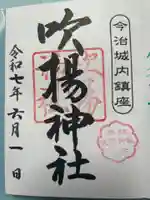 今治城内鎮座
吹揚神社
令和七年六月一日